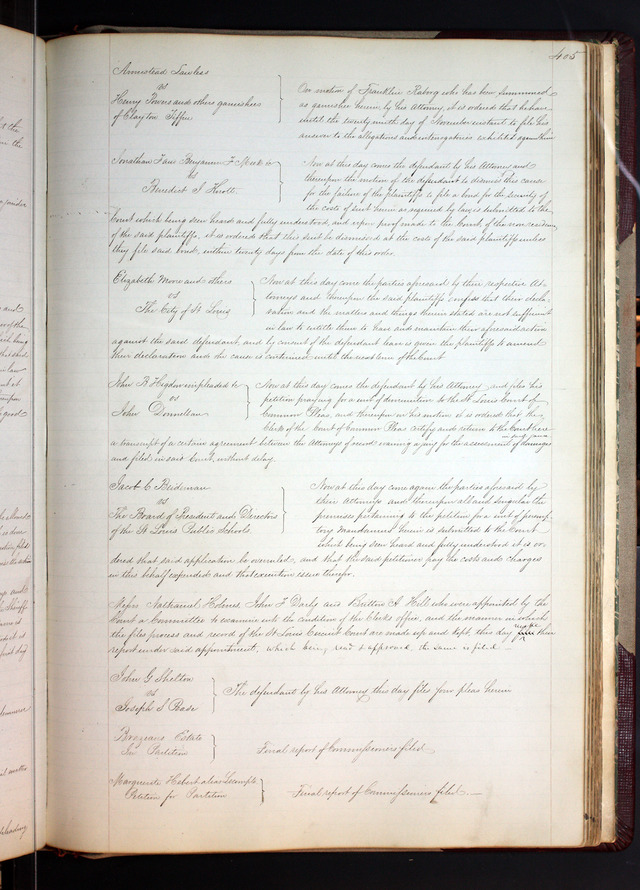 405
Armstead Lawless
vs
Henry Powers and others garnishees
of Clayton Tiffin
On motion of Franklin who has been summoned
as garnishee herein by his Attorney, it is ordered that he have
until the twenty ninth day of November instant to file his
answer to the allegations and interrogatories exhibited against him
Jonathan Benjamin F Meek &
vs
Benedict S
Now at this day comes the defendant by his Attorney and
thereupon the motion of the defendant to dismiss this cause
for the failure of the plaintiffs to file a bond for the security of
the costs of suit herein as required by law, is submitted to the
Court which being seen heard and fully understood, and upon proof made to the Court of the non residence
of the said plaintiffs, it is ordered that this suit be dismissed at the costs of the said plaintiffs unless
they file said bond, within twenty days from the date of this order.
Elizabeth Moore and others
vs
The City of St Louis
Now at this day come the parties aforesaid by their respective At-
torneys and thereupon the said plaintiffs confess that their decla-
ration and the matters and things herein stated are not sufficient
in law to entitle them to have and maintain their aforesaid action
against the said defendant, and by consent of the defendant leave is given the plaintiffs to amend
their declaration and the cause is continued until the next term of the Court
John B Higdon impleaded &
vs
John Donnelson
Now at this day comes the defendant by his Attorney and files his
petition praying for a writ of diminution to the St Louis Court of
Common Pleas, and thereupon on his motion it is ordered that the
Clerk of the Court of Common Pleas certify and return to the Court here
a transcript of a certain agreement between the Attorneys of record waiving a jury for the assessment of damages
and filed in said Court, without delay
Jacob C Beideman
vs
The Board of President and Directors
of the St Louis Public Schools
Now at this day come again the parties aforesaid by
their Attorneys and thereupon all and singular the
premises pertaining to the petition for a writ of peremp
tory Mandamus herein is submitted to the Court
which being seen heard and fully understood it is or-
dered that said application be overruled, and that the said petitioner pay the costs and charges
in this behalf expended and that execution issue therefor.
Messrs Nathaniel Holmes, John F Darby and Britton A Hill who were appointed by the
Court a Committee to examine into the condition of the Clerks office, and the manner in which
the files process and record of the St Louis Circuit Court are made up and kept, this day make their
report under said appointment, which being read & approved the same is filed —
John G Shelton
vs
Joseph S Pease
The defendant by his Attorney this day files four pleas herein
Brazeaus Estate
In Partition
Final report of Commissioners filed
Marguerite Hebert alias Lecompte
Petition for Partition
Final report of Commissioners filed. —